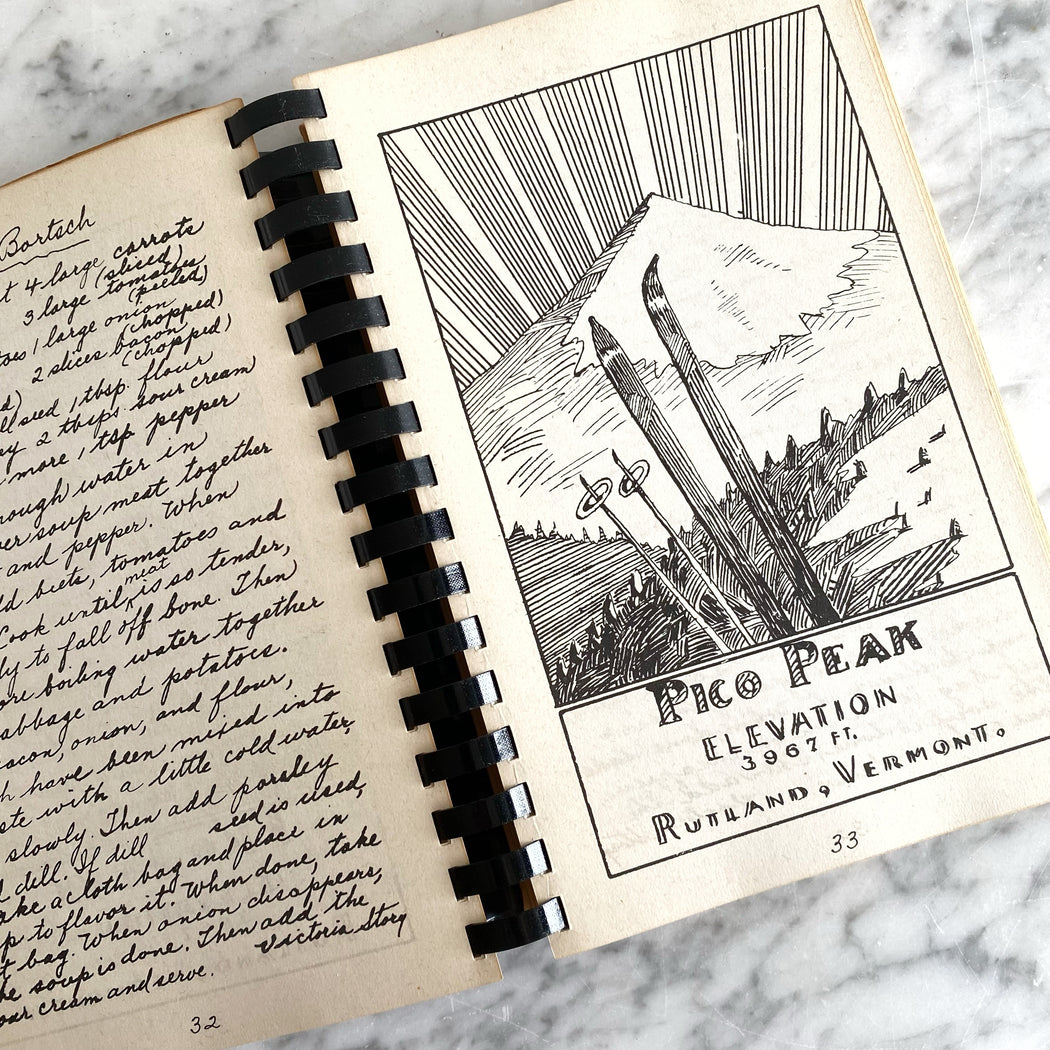 Bortsch
4 large carrots
(sliced)
3 large tomatoes
(peeled)
1 large onion
(chopped)
2 slices bacon
(chopped)
seed 1 tbsp. flour
2 tbsps sour cream
more 1 tsp pepper
water in
soup meat together
and pepper. When
beets, tomatoes and
Cook until meat is so tender,
to fall off bone. Then
boiling water together
cabbage and potatoes.
bacon, onion, and flour,
have been mixed into
with a little cold water,
slowly. Then add parsley
dill. If dill seed is used,
take a cloth bag and place in
to flavor it. When done, take
bag. When onion disappears,
soup is done. Then add the
sour cream and serve.
Victoria Story
32
PICO PEAK
ELEVATION
3967 FT.
RUTLAND, VERMONT.
33